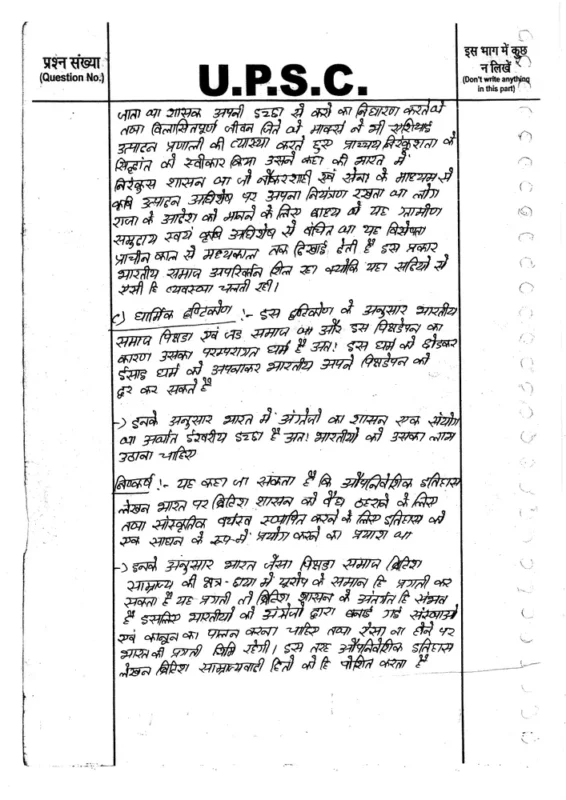 प्रश्न संख्या
(Question No.)
U.P.S.C.
इस भाग में कुछ
न लिखें
(Don't write anything
in this part)
जाता था शासक अपनी इच्छा से करो का निर्धारण करते थे
तथा विलासितपूर्ण जीवन जिते थे मार्क्स ने भी एशियाई
उत्पादन प्रणाली की व्याख्या करते हुए प्राच्य निरंकुशता के
सिद्धांत को स्वीकार किया उसने कहा की भारत में
निरंकुस शासन था जो नौकरशाही एवं सेना के माध्यम से
कृषि उत्पादन अधिशेष पर अपना नियंत्रण रखता था लोग
राजा के आदेश को मानने के लिए बाध्य थे यह ग्रामीण
समुदाय स्वयं कृषि अधिशेष से वंचित था यह विशेषता
प्राचीन काल से मध्यकाल तक दिखाई देती है इस प्रकार
भारतीय समाज अपरिवर्तन शिल रहा क्योकि यहा सदियो से
एसी हि व्यवस्था चलती रही।
c) धार्मिक दृष्टिकोण :- इस दृष्टिकोण के अनुसार भारतीय
समाज पिछडा एवं जड समाज था और इस पिछडेपन का
कारण उसका परम्परागत धर्म है अतः इस धर्म को छोडकर
ईसाइ धर्म को अपनाकर भारतीय अपने पिछडेपन को
दूर कर सकते है
-) इनके अनुसार भारत में अंग्रेजो का शासन एक संयोग
था अर्थात ईश्वरीय इच्छा है अतः भारतीयो को उसका लाभ
उठाना चाहिए
निष्कर्ष :- यह कहा जा सकता है कि औपनिवेशिक इतिहास
लेखन भारत पर ब्रिटिश शासन को वैध ठहराने के लिए
तथा सांस्कृतिक वर्चस्व स्थापित करने के लिए इतिहास को
एक साधन के रूप में प्रयोग करने का प्रयाश था
-) इनके अनुसार भारत जैसा पिछडा समाज ब्रिटिश
साम्राज्य की छत्र-छाया में यूरोप के समान हि प्रगती कर
सकता है यह प्रगती तो ब्रिटिश शासन के अंतर्गत हि संभव
है इसलिए भारतीयो को अंग्रेजो द्वारा बनाई गई संस्थाओ
एवं कानून का पालन करना चाहिए तथा ऐसा ना होने पर
भारत की प्रगती रहेगी। इस तरह औपनिवेशिक इतिहास
लेखन ब्रिटिश साम्राज्यवादी हितो को हि पोशित करता है